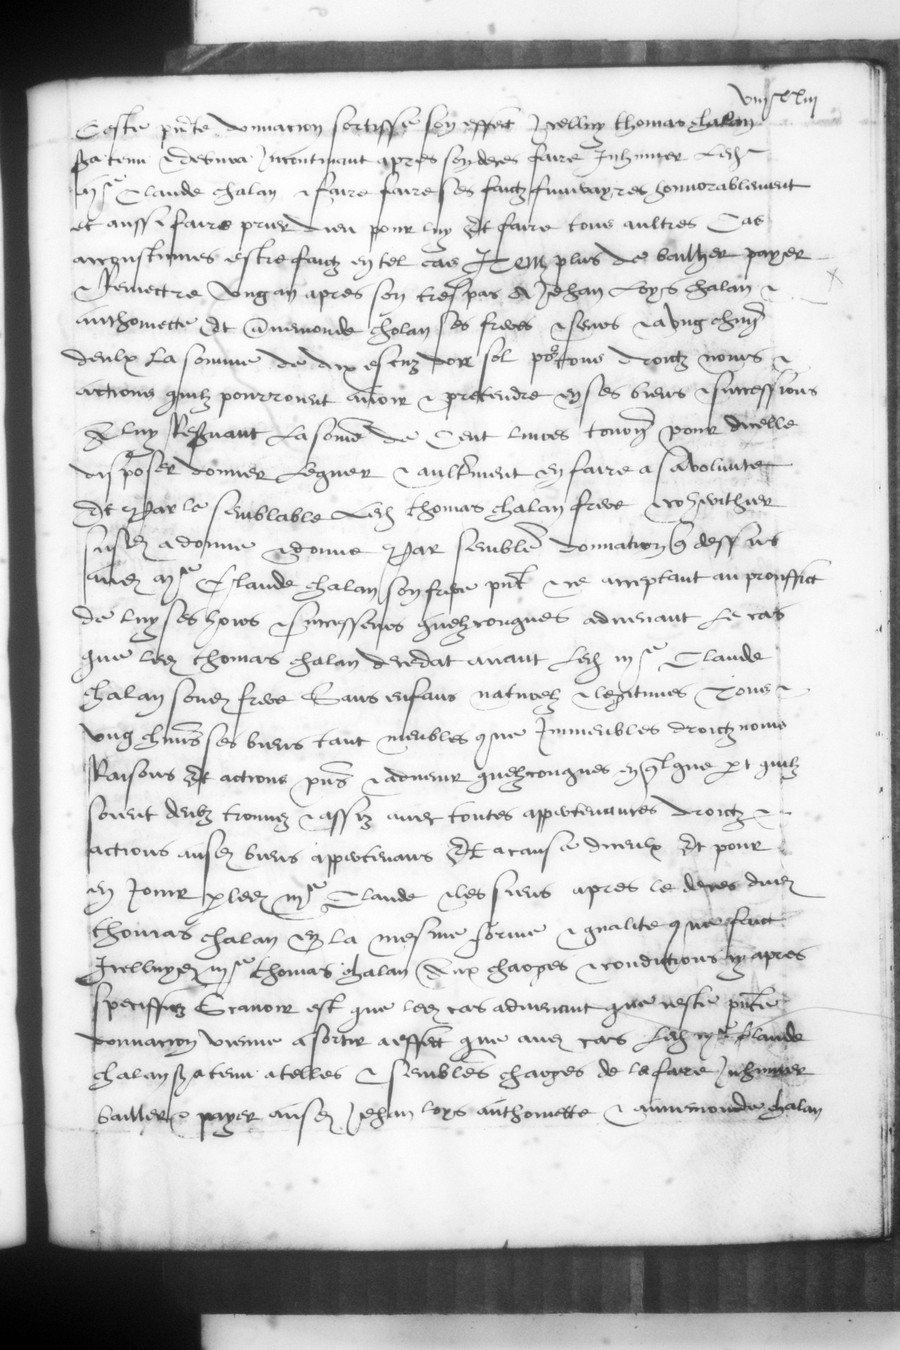 viij xx iij
Ceste pnte donnacion sortisse son effect Icelluy thomas chalan
sera tenu & debvra Incontinant apres son deces faire Inhumer Led
me Claude chalan & faire faire ses faictz funurayres honnorablement
et aussi faire prier dieu pour luy Et faire tous aultres Cas
accoustumes estre faictz en tel cas Item plus de bailher payer
& Remettre ung an apres son trespas A Jehan Loys chalan &
anthomette Et chalan ses freres & seurs & a ung chun
deulx La somme de dix escuz dor sol por tous droictz noms &
actions quilz pourroient avoir & pretendre en ses biens & successions
A luy Reservant La some de Cent livres tournz pour dicelle
disposer donner Leguer & aultrement en faire a sa volunte
Et Par le semblable Led thomas chalan frere
susd a donne & donne Par semble donnation q dessus
aud me Claude chalan son frere pnt & ce acceptant au prouffict
de luy ses hoirs & successeurs quelzconques advenant Le cas
que led thomas chalan decedat avant Led me Claude
chalan sond frere Sans enfans naturelz & legitimes Tous &
ung chuns ses biens tant meubles que Immeubles droictz noms
Raisons Et actions pns & advenir quelzconques en qlque part quilz
soient deubz trouvez & assiz avec toutes appertenances droictz &
actions ausd biens appertenans Et a cause diceulx Et pour
en Jouir p led me Claude & les siens apres le deces dud
thomas chalan En la mesme forme & qualite que faict
Icelluy me thomas chalan Aux charges & conditions cy apres
speciffiez Scavoir est que led cas advenant que ceste pnte
donnacion vienne a sortir a effect que aud cas Led me Claude
chalan sera tenu a telles & semblables charges de le faire Inhumer
bailher & payer ausd Jehan loys anthomette & chalan